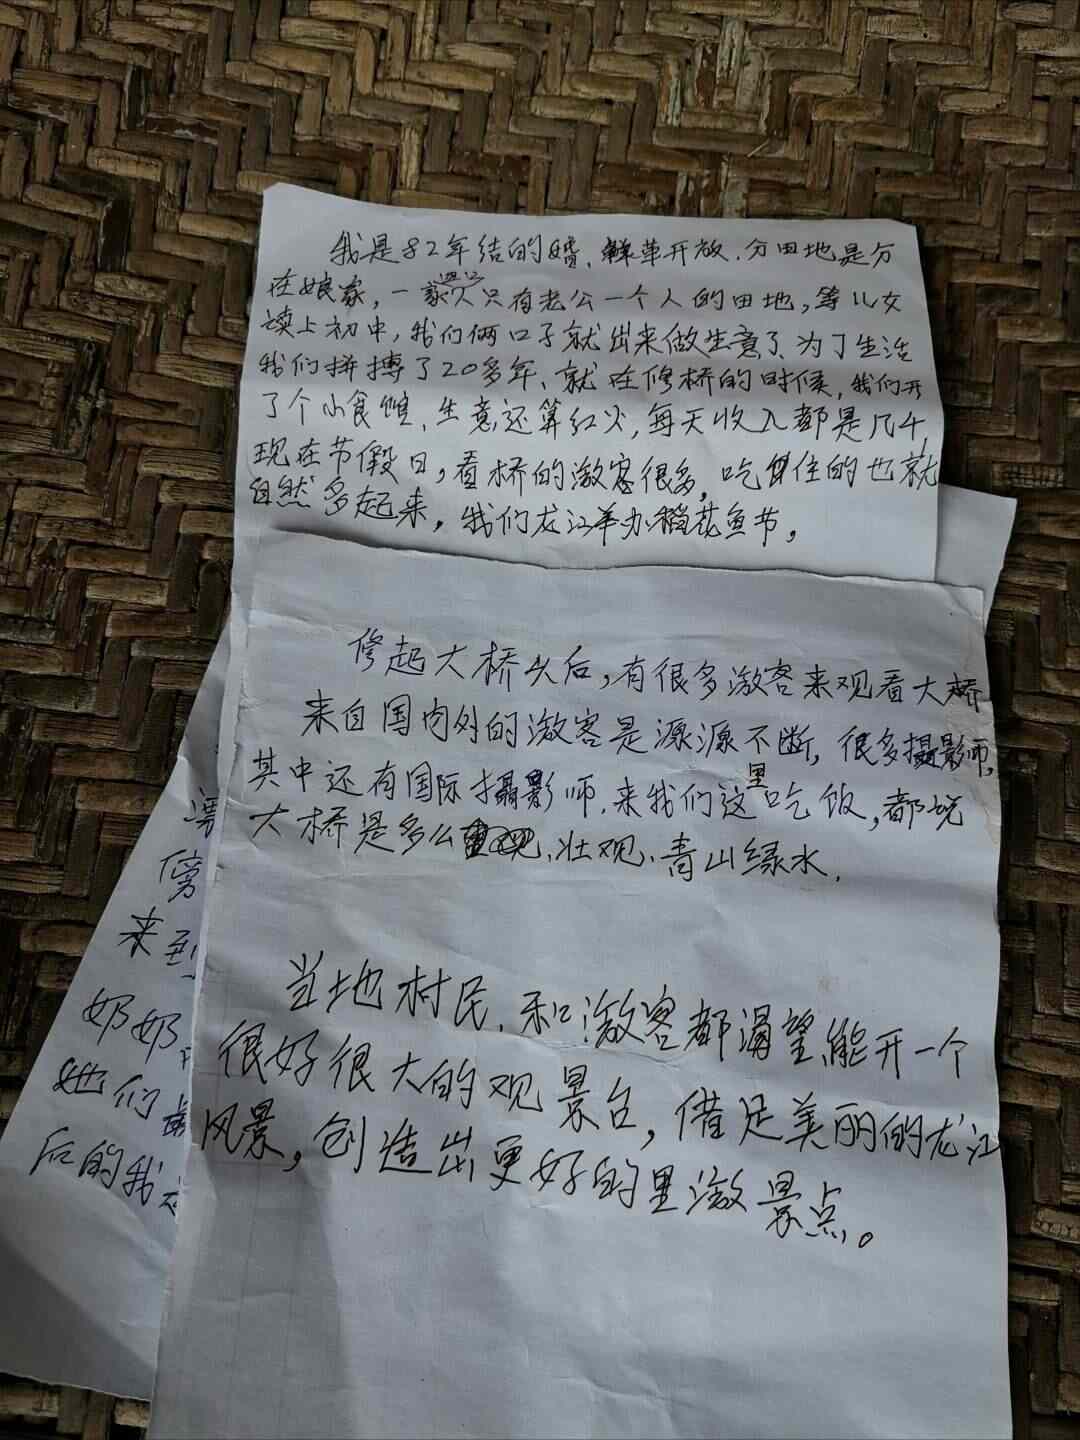 我是82年结的婚、改革开放、分田地是分
在娘家，一家人只有老公一个人的田地，等儿女
读上初中，我们俩口子就出来做生意了、为了生活
我们拼搏了20多年、就在修桥的时候，我们开
了个小食馆、生意还算红火，每天收入都是几千，
现在节假日，看桥的激客很多，吃住的也就
自然多起来，我们龙江举办稻花鱼节。
修起大桥头后，有很多激客来观看大桥
来自国内外的激客是源源不断，很多摄影师，
其中还有国际摄影师、来我们这里吃饭，都说
大桥是多么、壮观、青山绿水.
当地村民、和激客都渴望能开一个
很好很大的观景台，借足美丽的龙江
风景，创造出更好的激景点。
傍
来到
奶奶
她们
后的我